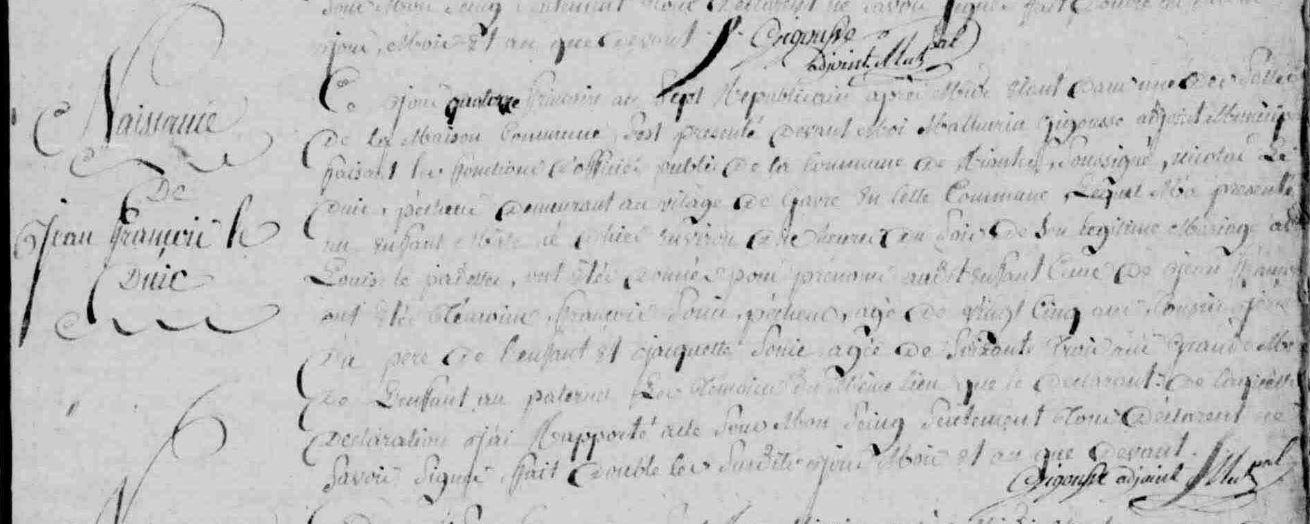 sous Mon Seing Seulement tous Declarent ne Savoir Signer fait Double les
jour, Mois Et an que Devant
Gigousse
adjoint Mupal
Naissance
De
Jean François le
Duic
Ce jour quatorze frimaire an Sept Republicain après Midi Etant Dans une des Salles
De la Maison Commune, S'est presenté Devant Moi Mathurin Gigousse adjoint Municip
faisant les fonctions D'officier public De la Commune De Riantec, Soussigné, nicolas Le
Duic, pêcheur Demeurant au vilage De Gavre En Cette Commune Lequel M'a presenté
un Enfant Mâle né D'hier Environ heures du Soir De Son Legitime Mariage avec
Louise le, ont Etés Donnés pour prénoms audit Enfant Ceux De Jean François
ont Etés Temoins, François Sonic, pêcheur, agé De Vingt Cinq ans Cousin
Du pere De L'enfant Et Jaquette Sonic agée De Soixante Trois ans Grande Mere
De L'enfant au paternel Les Temoins Du Même lieu que le Declarant: De laquelle
Declaration J'ai Rapporté acte Sous Mon Seing Seulement Tous Declarent ne
Savoir Signer ffait Double les Susdits Jour Mois Et an que Devant.
Gigousse adjoint Mupal